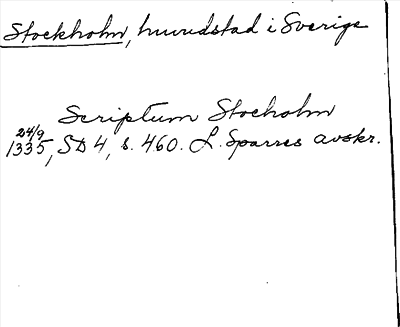 Stockholm, huvudstad i Sverige
Scriptum Stocholm
24/9
1335, SD 4, s. 460. L. Sparres avskr.